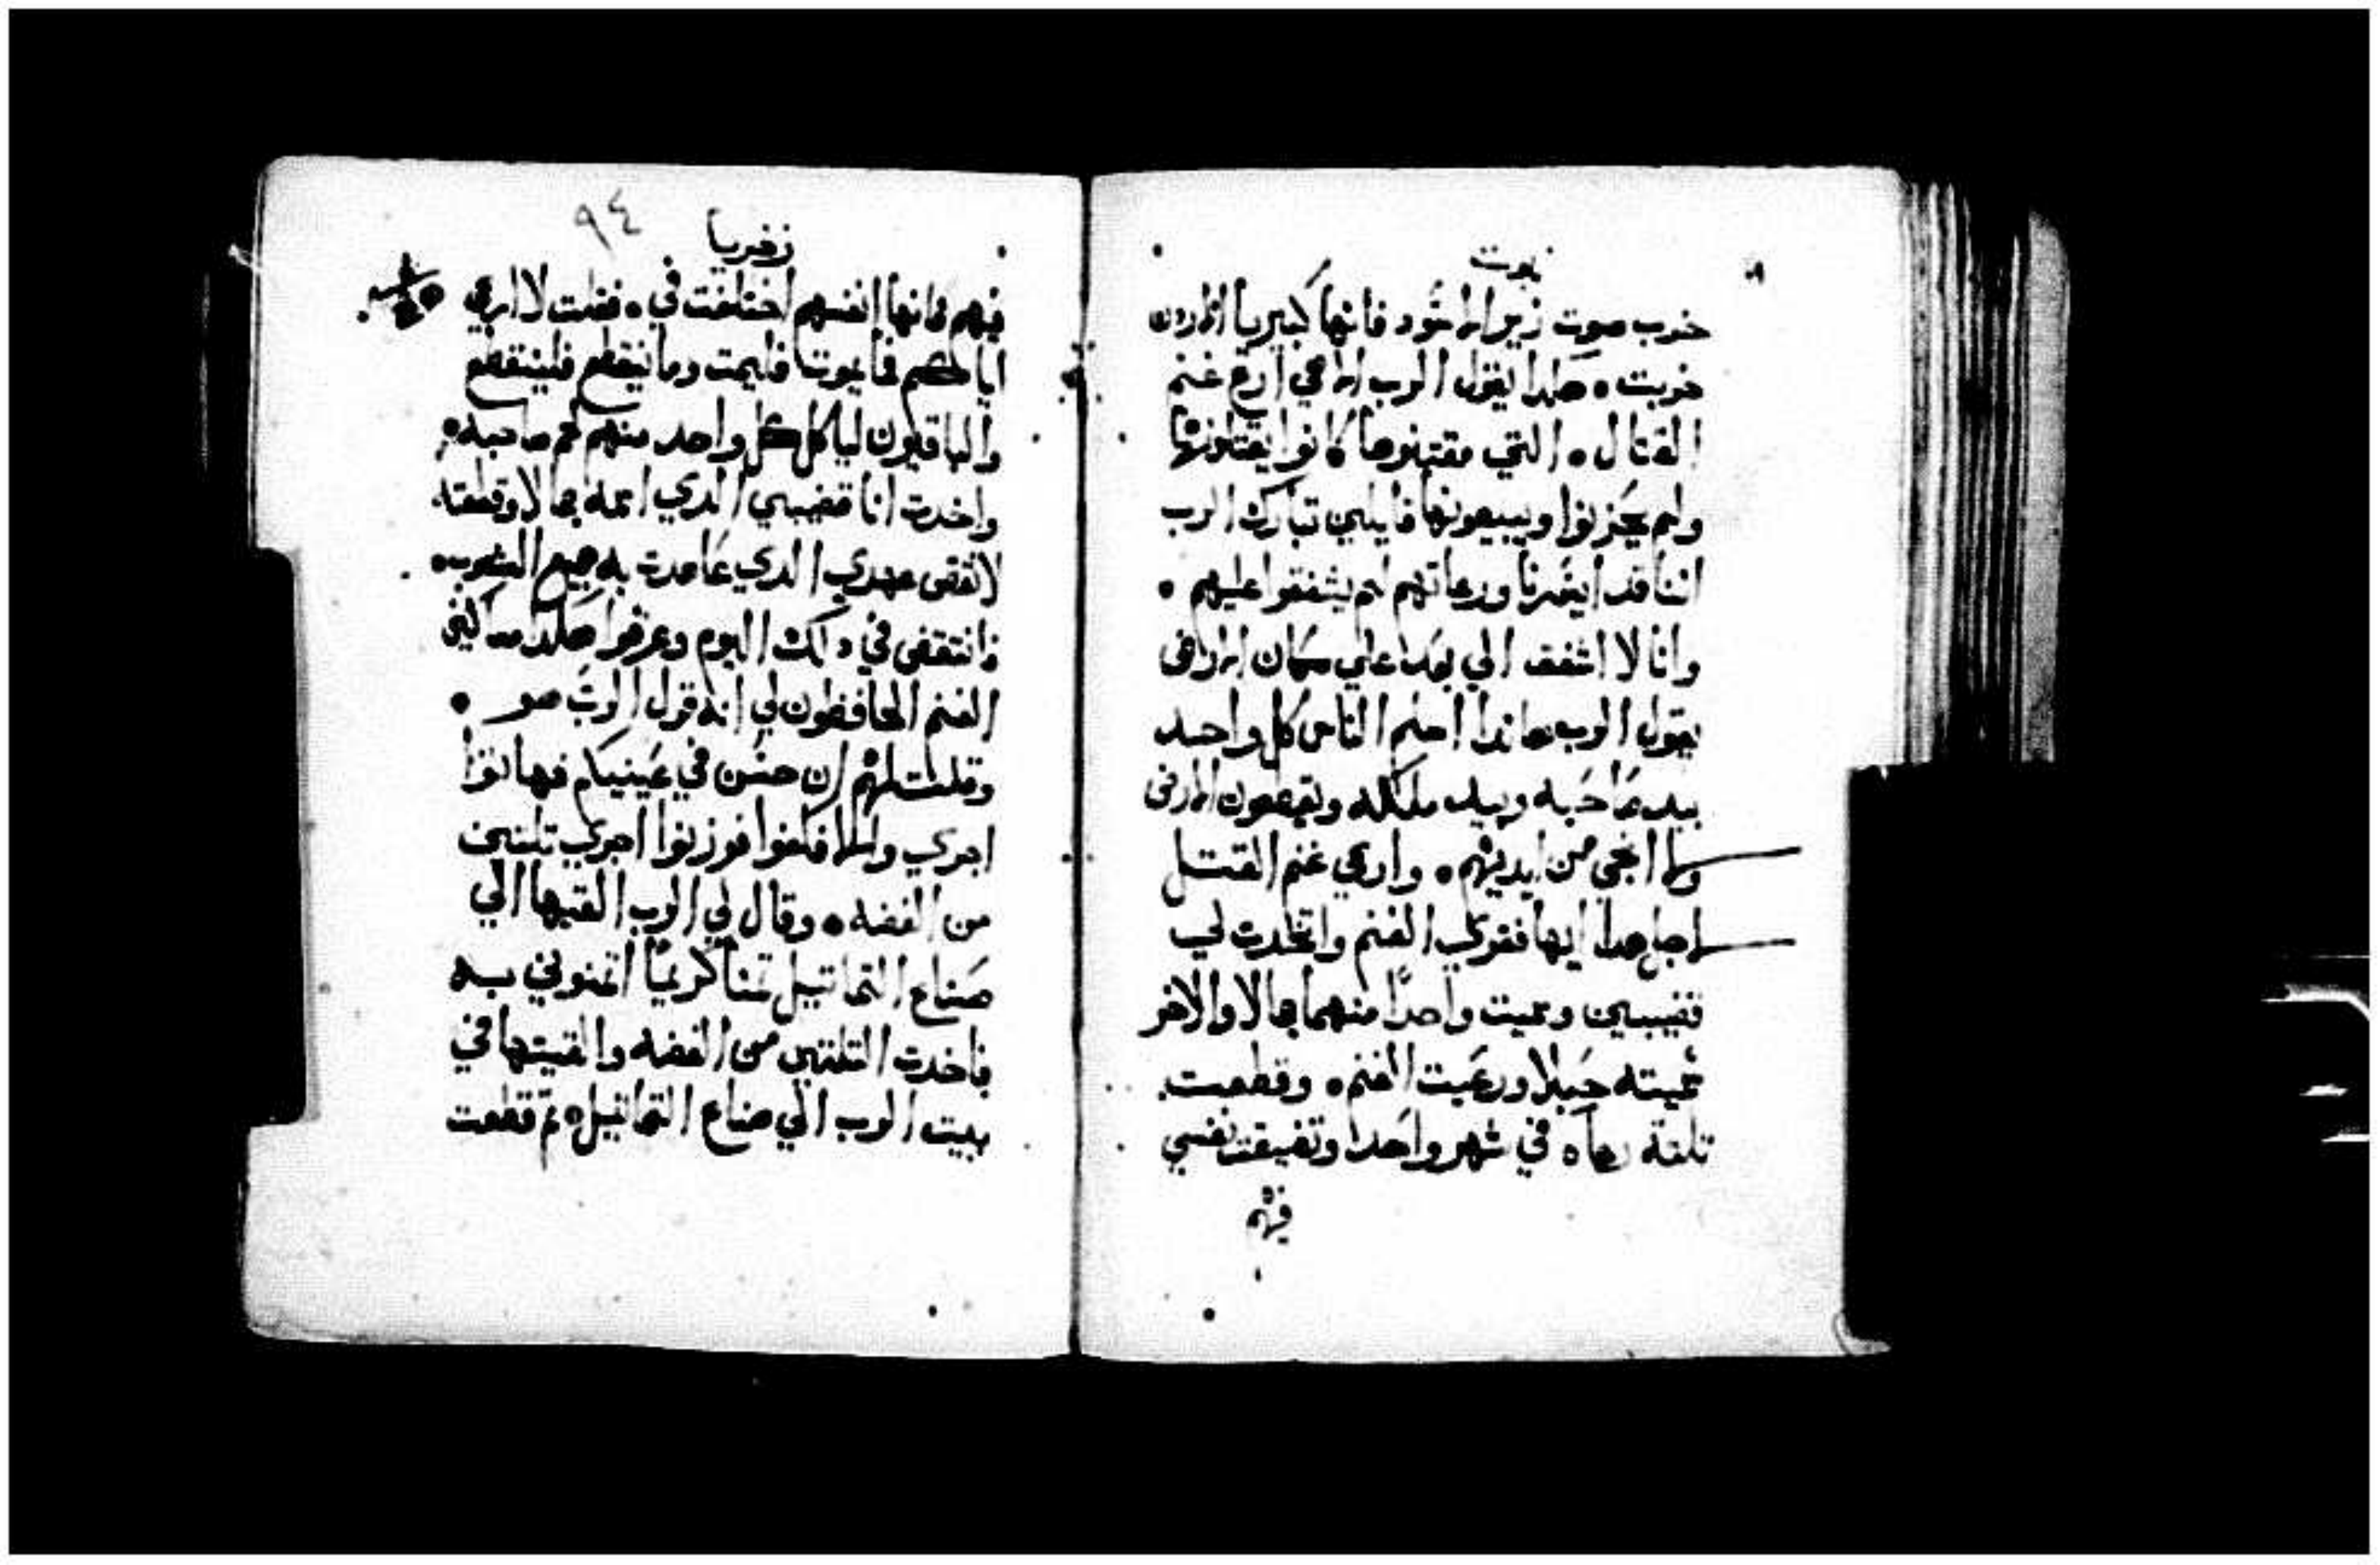 نبوت
خرب صوت زير الاسود فانها كبيريا الاردن
خربت ٠ هكدا يقول الرب الراعي ارع غنم
القتال ٠ التي مقتنوها كانوا يقتلونها
ولم يحزنوا ويبيعونها قايلين تبارك الرب
اننا قد ورعاتهم لم يشفقوا عليهم ٠
وانا لا اشفق الي بعدا علي سكان الاراضى
يقول الرب هاندا اسلم الناس كل واحد
بيد صاحبه وبيد ملكه ويقطعون الارض
ولا انجي من ايديهم ٠ وارعي غنم القتل
ايها فقري الغنم واتخدت لي
قضيبين وسميت واحدًا منهما جمالا والاخر
سميته حبلا ورعيت الغنم ٠ وقطعت
تلتة رعاه في شهر واحدا وتضيقت نفسي
فيهم
زخريا
٩٤
فيهم فانها انفسهم اختلفت في ٠ فقلت لا ارعي
اياكم فما يموتا فليمت وما ينقطع فلينقطع
والباقيون لياكل كل واحد منهم لحم صاحبه ٠
واخدت انا قضيبي الدي اسمه جمالا وقطعته
لانقض عهدي الدي عاهدت به جميع الشعوب ٠
فانتقض في دلك اليوم وعرفوا هكدا
الغنم الحافظون لي انه قول الرب هو ٠
وقلت لهم ان حسن في عينيكم فهاتوا
اجري والا فوزنوا اجري تلتين
من الفضه ٠ وقال لي الرب القيها الي
صناع التماتيل تمنا كريما اتمنوني به
فاخدت التلتين من الفضه والقيتها في
بيت الرب الي صناع التماتيل ٠ تم قطعت